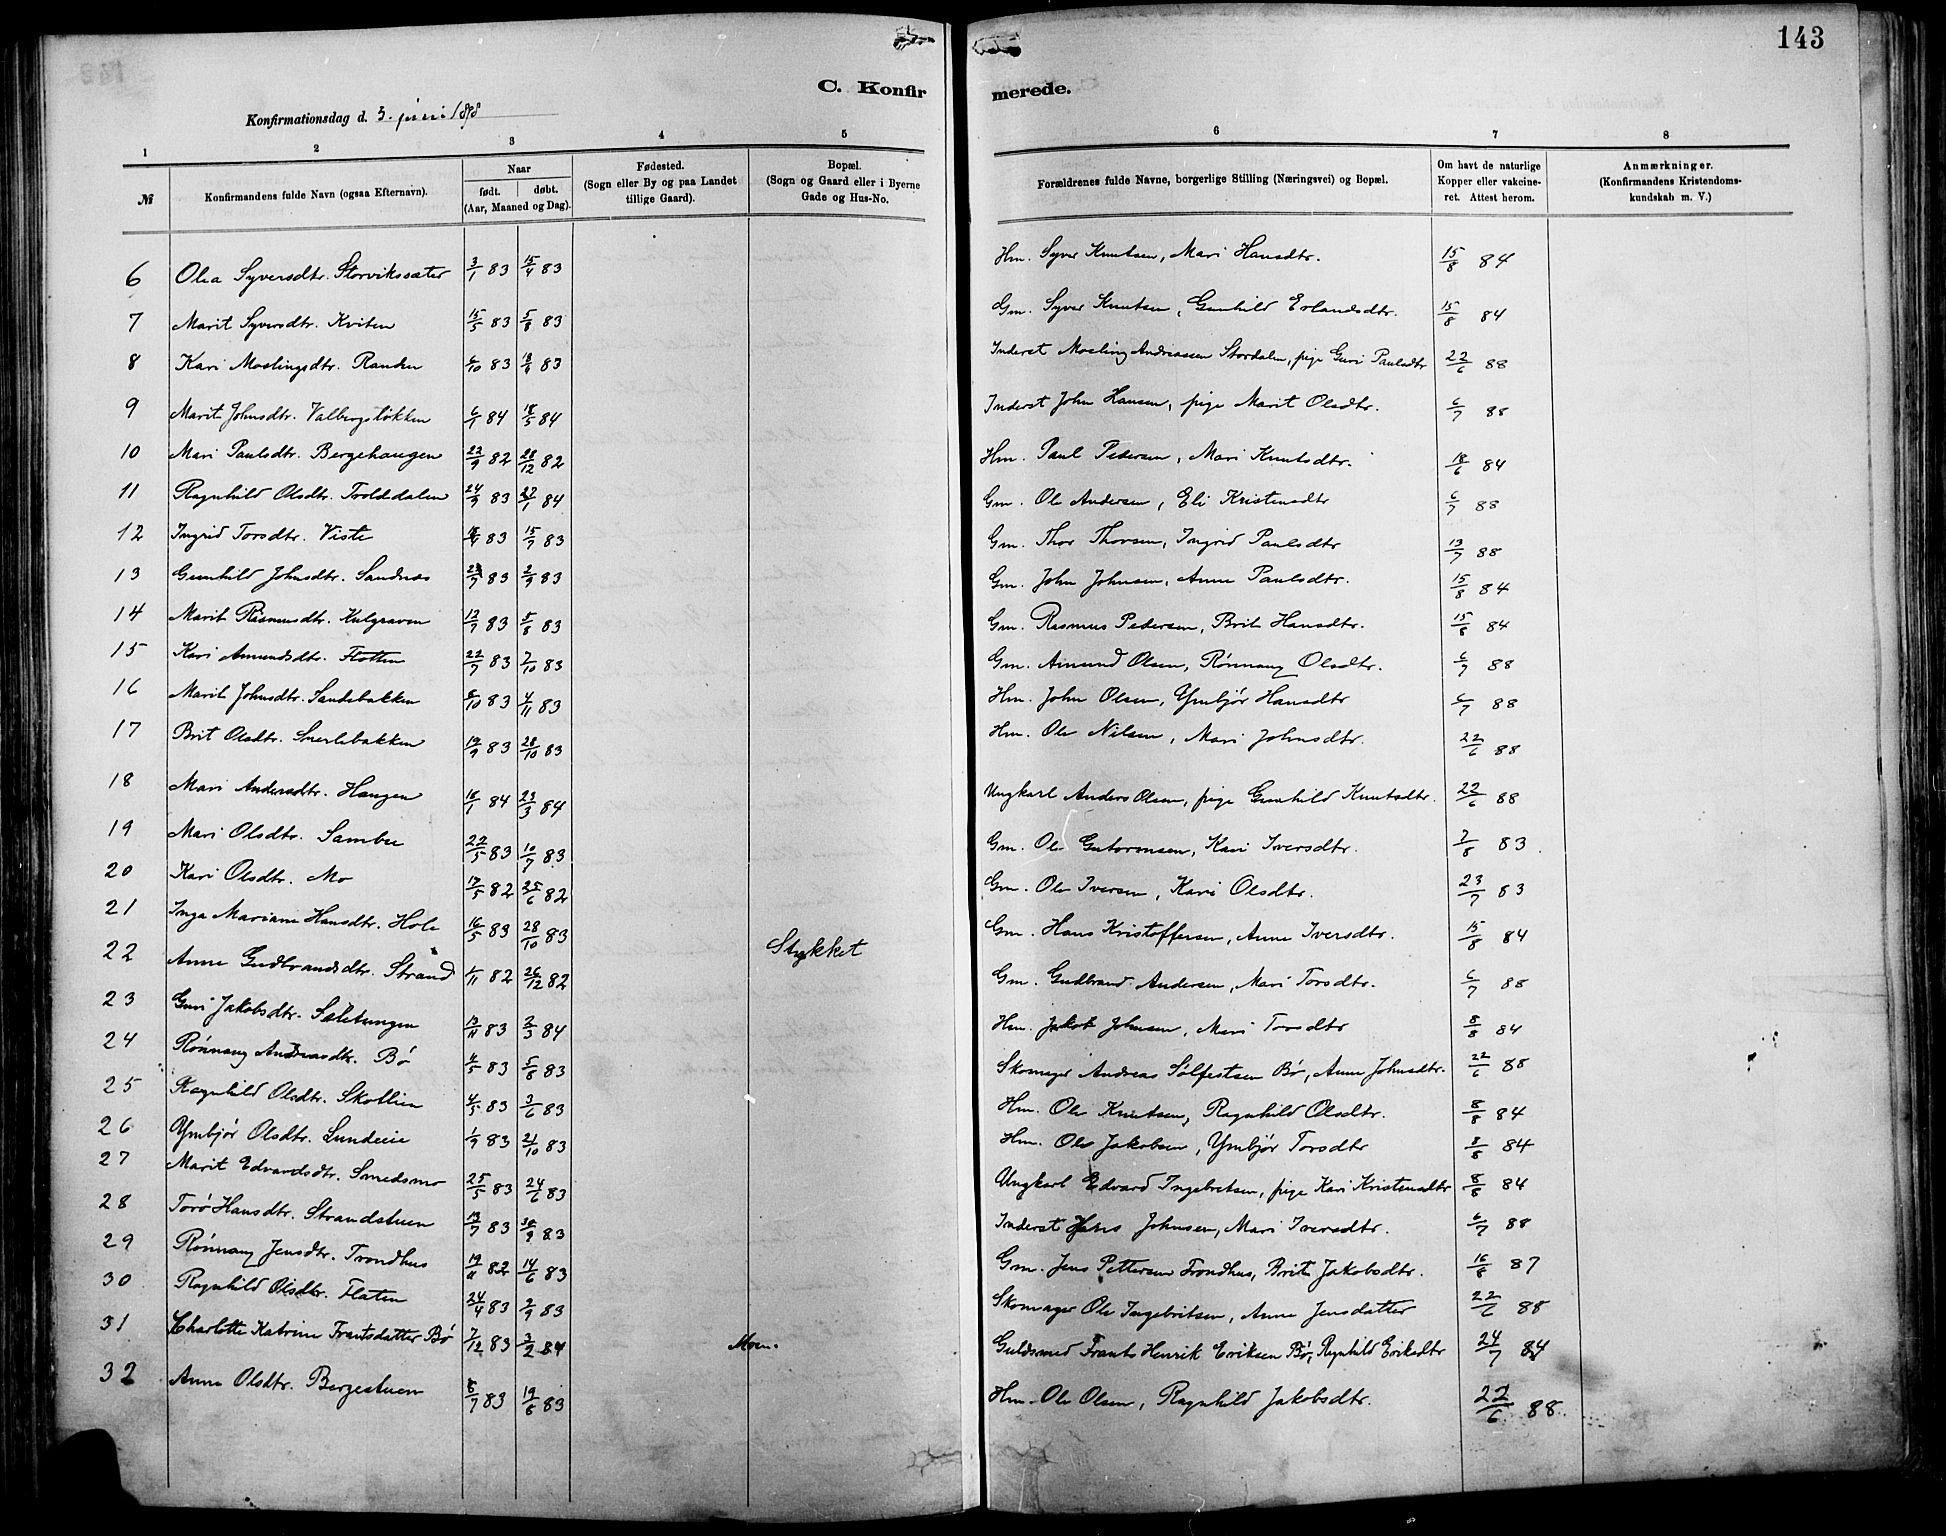 143
C. Konfir merede.
Konfirmationsdag d. 5. juni 1898
1 2 3 4 5 6 7 8
№ Konfirmandens fulde Navn (ogsaa Efternavn). Naar født. døbt. (Aar, Maaned og Dag). Fødested. (Sogn eller By og paa Landet tillige Gaard). Bopæl. (Sogn og Gaard eller i Byerne Gade og Hus-No. Forældrenes fulde Navne, borgerlige Stilling (Næringsvei) og Bopæl. Om havt de naturlige Kopper eller vakcineret. Attest herom. Anmærkninger. (Konfirmandens Kristendomskundskab m. V.)
6 Olea Syversdtr. Storvikssæter 3/1 83 15/4 83 Hm. Syver Knutsen, Mari Hansdtr. 15/8 84
7 Marit Syversdtr. Kviten 15/5 83 5/8 83 Gm. Syver Knutsen, Gunhild Erlandsdtr. 15/8 84
8 Kari Moslingsdtr. Randen 6/10 83 83 Inderst Mosling Andreassen Stordalen, pige Guri Paulsdtr 22/6 88
9 Marit Johnsdtr. Valbergsløkken 6/1 84 18/5 84 Inderst John Hansen, pige Marit Olsdtr. 6/7 88
10 Mari Paulsdtr. Bergehaugen 22/9 82 28/12 82 Hm. Paul Pedersen, Mari Knutsdtr. 18/6 84
11 Ragnhild Olsdtr. Troldedalen 24/9 83 27/1 84 Gm. Ole Andersen, Eli Kristensdtr 6/7 88
12 Ingrid Torsdtr. Viste 83 15/7 83 Gm. Thor Thorsen, Ingrid Paulsdtr 13/7 88
13 Gunhild Johnsdtr. Sandnæs 83 2/9 83 Gm. John Johnsen, Anne Paulsdtr. 15/8 84
14 Marit Rasmusdtr. Kulgraven 12/7 83 5/8 83 Gm. Rasmus Pedersen, Brit Hansdtr. 15/8 84
15 Kari Amundsdtr. Flotten 22/7 83 7/10 83 Gm. Amund Olsen, Rönnaug Olsdtr. 6/7 88
16 Marit Johnsdtr. Sandebakken 6/10 83 4/11 83 Hm. John Olsen, Ymbjör Hansdtr 6/7 88
17 Brit Olsdtr. Smerlebakken 19/9 83 28/10 83 Hm. Ole Nilsen, Mari Johnsdtr. 22/6 88
18 Mari Andersdtr. Haugen 18/1 84 23/3 84 Ungkarl Anders Olsen, pige Gunhild Knutsdtr. 22/6 88
19 Mari Olsdtr. Sambu 22/5 83 10/7 83 Gm. Ole Gutormsen, Kari Iversdtr. 7/8 83
20 Kari Olsdtr. Mo 17/5 82 25/6 82 Gm. Ole Iversen, Kari Olsdtr. 23/7 83
21 Inga Mariane Hansdtr. Hole 16/5 83 28/10 83 Gm. Hans Kristoffersen, Anne Iversdtr. 15/8 84
22 Anne Gudbrandsdtr. Strand 6/11 82 26/12 82 Stykket Gm. Gudbrand Andersen, Mari Torsdtr. 6/7 88
23 Guri Jakobsdtr. Sæletungen 13/11 83 2/3 84 Hm. Jakob Johnsen, Mari Torsdtr 8/8 84
24 Rönnaug Andreasdtr. Bö 4/5 83 5/8 83 Skomager Andreas Sölfestsen Bö, Anne Johnsdtr. 22/6 88
25 Ragnhild Olsdtr. Skotlien 4/5 83 3/6 83 Hm. Ole Knutsen, Ragnhild Olsdtr. 8/8 84
26 Ymbjör Olsdtr. Lundeie 1/9 83 21/10 83 Hm. Ole Jakobsen, Ymbjör Torsdtr 8/8 84
27 Marit Edvardsdtr. Smedsmo 25/5 83 24/6 83 Ungkarl Edvard Ingebretsen, pige Kari Kristensdtr 8/8 84
28 Torö Hansdtr. Strandstuen 13/7 83 30/9 83 Inderst Hans Johnsen, Mari Iversdtr. 6/7 88
29 Rönnaug Jensdtr. Trondhus 19/11 82 14/6 83 Gm. Jens Pettersen Trondhus, Brit Jakobsdtr. 16/8 87
30 Ragnhild Olsdtr. Flaten 24/4 83 2/9 83 Skomager Ole Ingebritsen, Anne Jensdatter 22/6 88
31 Charlotte Katrine Frantsdatter Bö 7/12 83 3/2 84 Moen. Guldsmed Frants Henrik Eriksen Bö, Ragnhild Eriksdtr 24/7 84
32 Anne Olsdtr. Bergestuen 8/7 83 19/8 83 Hm. Ole Olsen, Ragnhild Jakobsdtr. 22/6 88.